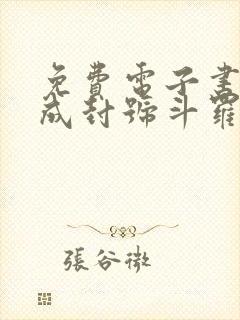 免費電子書
成封號斗羅
張谷微